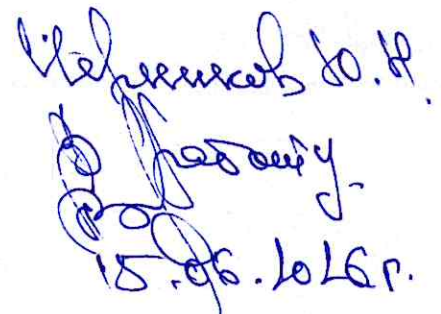 Черников Ю.Н.
В работу.
15.06.2026 г.